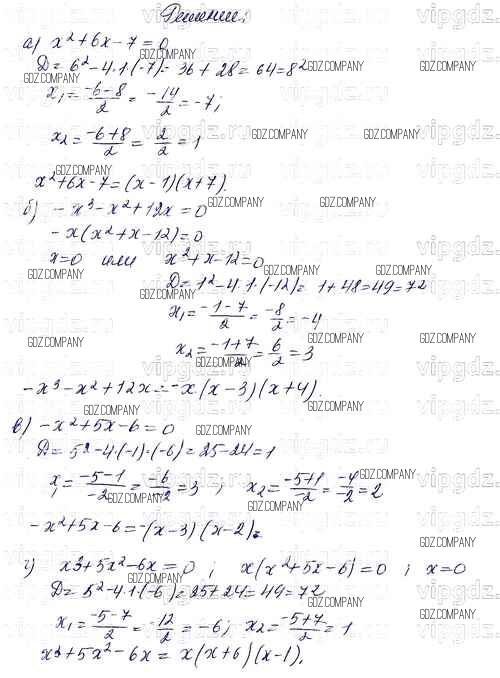 Решение:
а) x²+6x-7=0
D=6²-4·1·(-7)=36+28=64=8²
x₁=(-6-8)/2=-14/2=-7;
x₂=(-6+8)/2=2/2=1
x²+6x-7=(x-1)(x+7).
б) -x³-x²+12x=0
-x(x²+x-12)=0
x=0 или x²+x-12=0
D=1²-4·1·(-12)=1+48=49=7²
x₁=(-1-7)/2=-8/2=-4
x₂=(-1+7)/2=6/2=3
-x³-x²+12x=-x(x-3)(x+4).
в) -x²+5x-6=0
D=5²-4·(-1)·(-6)=25-24=1
x₁=(-5-1)/-2=-6/-2=3; x₂=(-5+1)/-2=-4/-2=2
-x²+5x-6=-(x-3)(x-2).
г) x³+5x²-6x=0; x(x²+5x-6)=0; x=0
D=5²-4·1·(-6)=25+24=49=7²
x₁=(-5-7)/2=-12/2=-6; x₂=(-5+7)/2=1
x³+5x²-6x=x(x+6)(x-1).
GDZ.COMPANY
vipgdz.ru